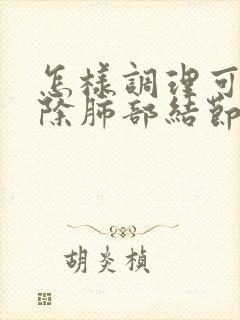 怎樣調理可
除肺部結節
胡炎楨